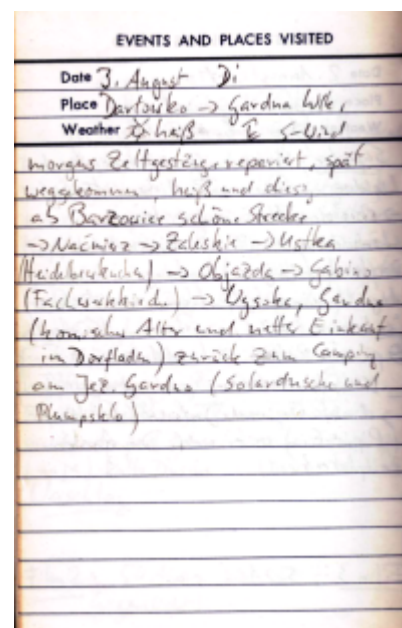 EVENTS AND PLACES VISITED
Date 3. August Di
Place Darłówko -> Gardna Wlk,
Weather heiß S-Wind
morgens Zeltgestänge repariert, spät
weggekommen, heiß und diesig
ab Barzowice schöne Strecke
-> Naćmierz -> Zaleskie -> Ustka
(Heidelbeerkuchen) -> Objazda -> Gąbino
(Fachwerkkirche) -> Wysoka, Gardna
(komischer Alter und netter Einkauf
im Dorfladen) zurück zum Camping
am Jez. Gardno (Solardusche und
Plumpsklo)